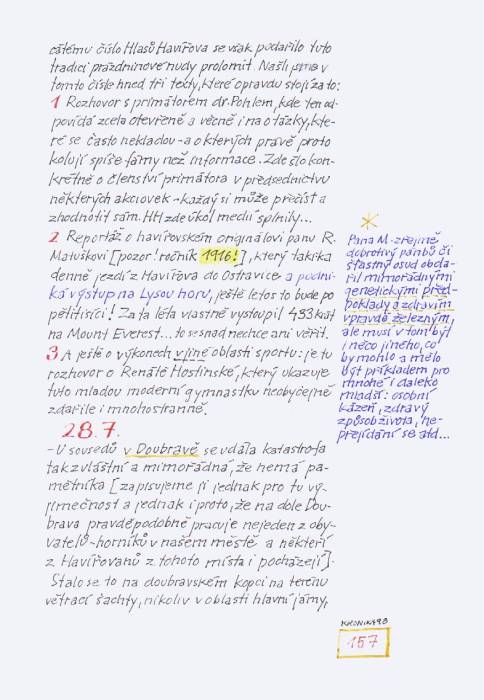 cátému číslo Hlasů Havířova se však podařilo tuto
tradici prázdninové nudy prolomit. Našli jsme v
tomto čísle hned tři texty, které opravdu stojí za to:
1 Rozhovor s primátorem dr. Pohlem, kde ten od-
povídá zcela otevřeně a věcně i na otázky, kte-
ré se často nekladou - a o kterých právě proto
kolují spíše fámy než informace. Zde šlo kon-
krétně o členství primátora v předsednictvu
některých akciovek - každý si může přečíst a
zhodnotit sám. HH zde úkol medií splnily...
2 Reportáž o havířovském originálovi panu R.
Matuškovi [pozor! ročník 1916!], který takřka
denně jezdí z Havířova do Ostravice a podni-
ká výstup na Lysou horu, ještě letos to bude po
pětitisící! Za ta léta vlastně vystoupil 493 krát
na Mount Everest... to se snad nechce ani věřit.
3 A ještě o výkonech v jiné oblasti sportu: je tu
rozhovor o Renátě Hostinské, který ukazuje
tuto mladou moderní gymnastku neobyčejně
zdařile i mnohostranně.
28.7.
- U sousedů v Doubravě se udála katastrofa
tak zvláštní a mimořádná, že nemá pa-
mětníka [zapisujeme ji jednak pro tu vý-
jimečnost a jednak i proto, že na dole Dou-
brava pravděpodobně pracuje nejeden z oby-
vatelů-horníků v našem městě a někteří
z Havířovanů z tohoto místa i pocházejí].
Stalo se to na doubravském kopci na terénu
větrací šachty, nikoliv v oblasti hlavní jámy,
Pana M. zřejmě
dobrotivý pánbů či
šťastný osud obda-
řil mimořádnými
genetickými před-
poklady a zdravím
vpravdě železným,
ale musí v tom být
i něco jiného, co
by mohlo a mělo
být příkladem pro
mnohé i daleko
mladší: osobní
kázeň, zdravý
způsob života, ne-
přejídání se atd...
KRONIKA 98
157